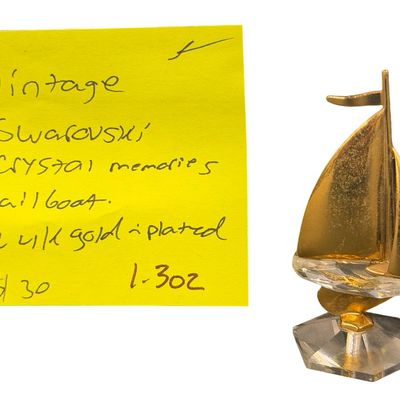 intage
Swarovski
Crystal memories
ailboat.
gold plated
30
1.302